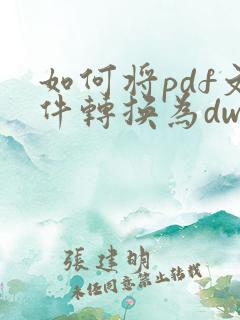 如何将pdf文
件轉換為dw
張建明
未经同意禁止转载